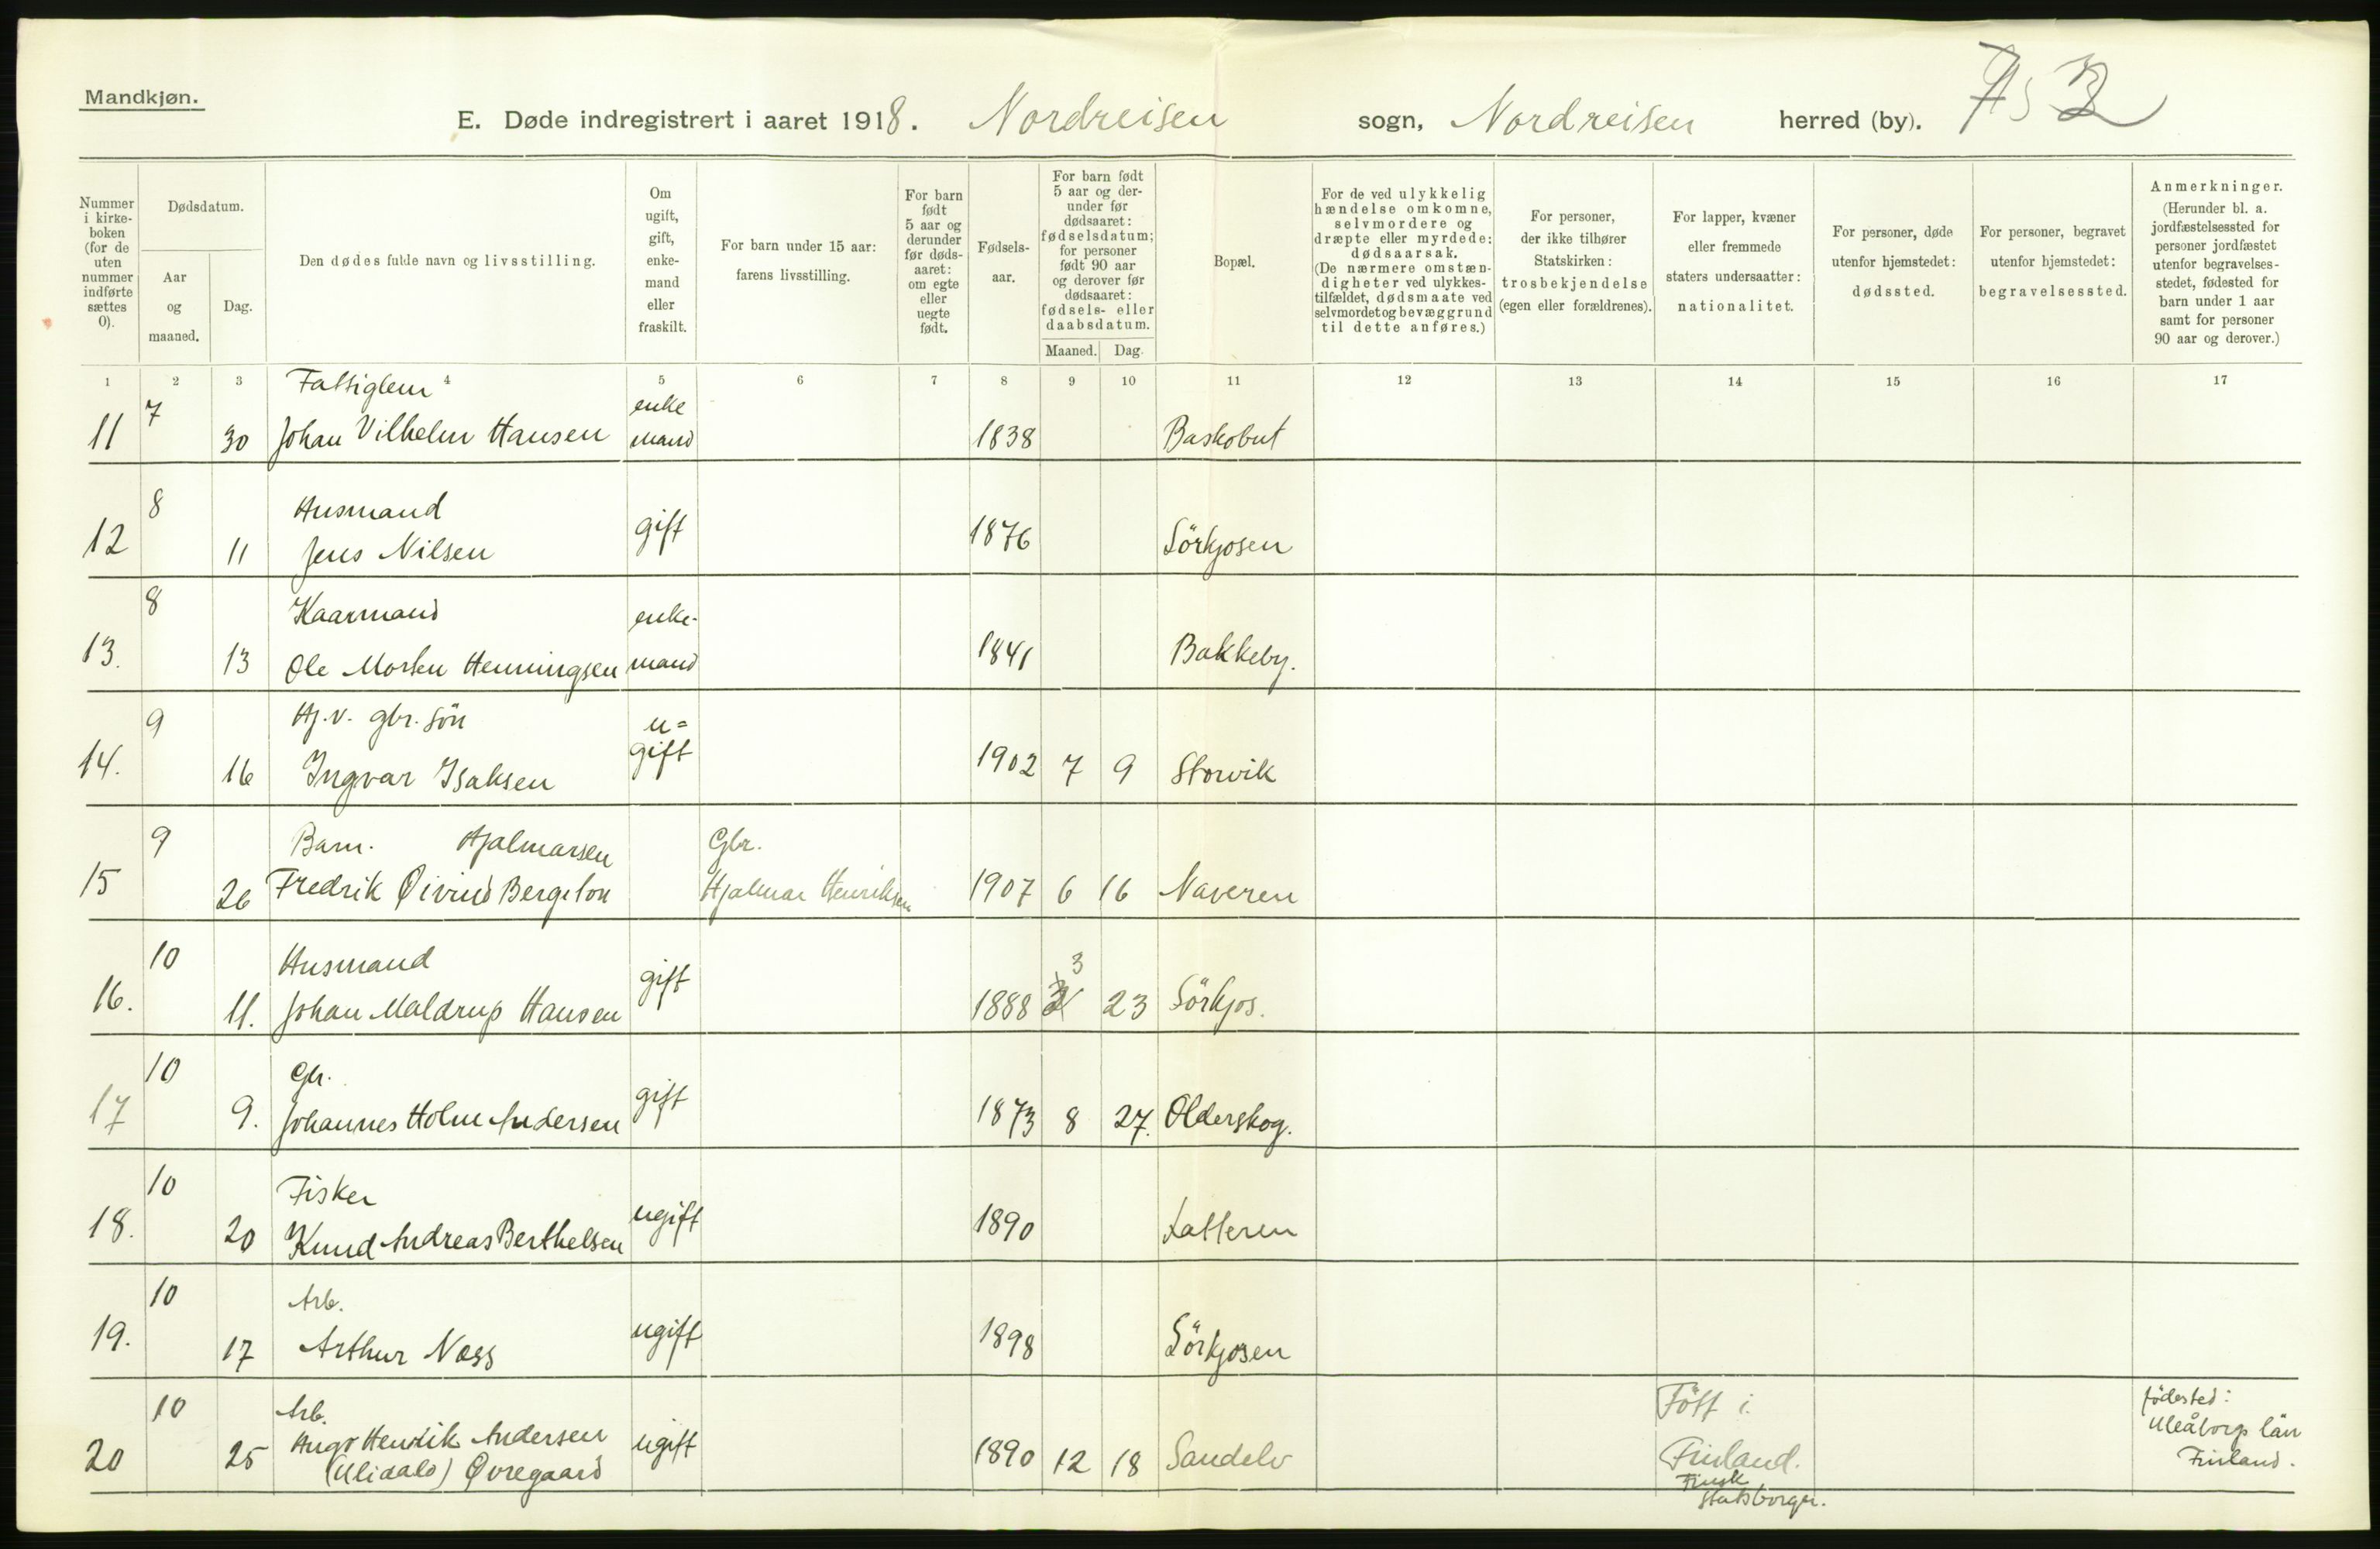 Mandkjøn.
E. Døde indregistrert i aaret 1918. Nordreisen sogn, Nordreisen herred (by).
Nummer i kirke- boken (for de uten nummer indførte sættes 0).
Dødsdatum.
Aar og maaned.
Dag.
Den dødes fulde navn og livsstilling.
Om ugift, gift, enke- mand eller fraskilt.
For barn under 15 aar: farens livsstilling.
For barn født 5 aar og derunder før døds- aaret: om egte eller uegte født.
Fødsels- aar.
For barn født 5 aar og der- under før dødsaaret: fødselsdatum; for personer født 90 aar og derover før dødsaaret: fødsels- eller daabsdatum.
Maaned. Dag.
Bopæl.
For de ved ulykkelig hændelse omkomne, selvmordere og dræpte eller myrdede: dødsaarsak. (De nærmere omstæn- digheter ved ulykkes- tilfældet, dødsmaate ved selvmordet og bevæggrund til dette anføres.)
For personer, der ikke tilhører Statskirken: trosbekjendelse (egen eller forældrenes).
For lapper, kvæner eller fremmede staters undersaatter: nationalitet.
For personer, døde utenfor hjemstedet: dødssted.
For personer, begravet utenfor hjemstedet: begravelsessted.
Anmerkninger. (Herunder bl. a. jordfæstelsessted for personer jordfæstet utenfor begravelses- stedet, fødested for barn under 1 aar samt for personer 90 aar og derover.)
1 2 3 4 5 6 7 8 9 10 11 12 13 14 15 16 17
7 Fattiglem enke
11 30 Johan Vilhelm Hansen mand 1838 Baskobut
8 Husmand
12 11 Jens Nilsen gift 1876 Sörkjosen
8 Kaarmand enke-
13. 13 Ole Morten Henningsen mand 1841 Bakkeby.
9 Hj.v. gbr. sön u=
14. 16 Ingvar Isaksen gift 1902 7 9 Storvik
9 Barn. Hjalmarsen Gbr.
15 26 Fredrik Øivind Bergeton Hjalmar Henriksen 1907 6 16 Naveren
10 Husmand 3
16. 11. Johan Maldrup Hansen gift 1888 23 Sörkjos.
10 Gbr.
17 9. Johannes Holm Andersen gift 1873 8 27. Olderskog.
10 Fisker
18. 20 Knud Andreas Berthelsen ugift 1890 Latteren
10 Arb.
19. 17 Arthur Næss ugift 1898 Sörkjosen
10 Arb. Föff i födested:
20 25 Hugo Henrik Andersen ugift 1890 12 18 Sandelv Finland. Uleåborg län
(Uliaalo) Øvregaard Finsk Finland.
statsborger.